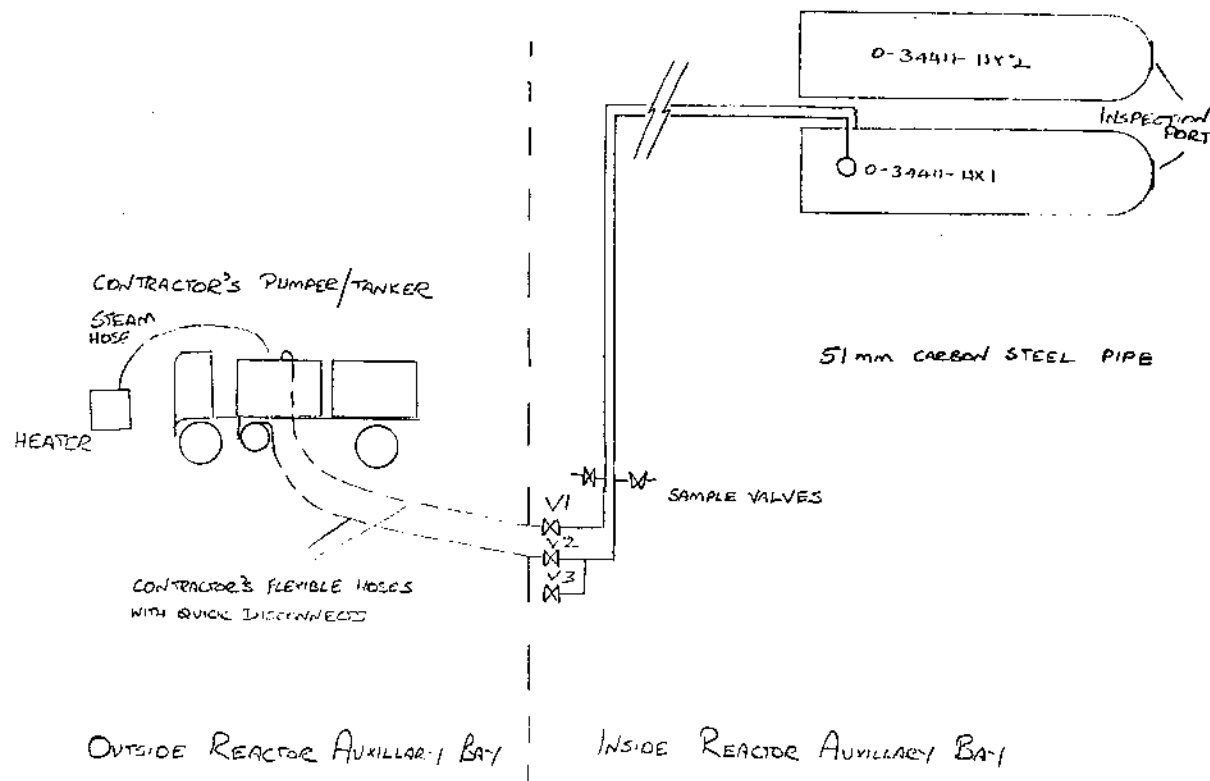 0-34411-HX2
INSPECTION
PORT
0-34411-HX1
CONTRACTOR'S PUMPER/TANKER
STEAM
HOSE
HEATER
51mm CARBON STEEL PIPE
SAMPLE VALVES
V1
V2
V3
CONTRACTOR'S FLEXIBLE HOSES
WITH QUICK DISCONNECTS
OUTSIDE REACTOR AUXILLARY BAY
INSIDE REACTOR AUXILLARY BAY